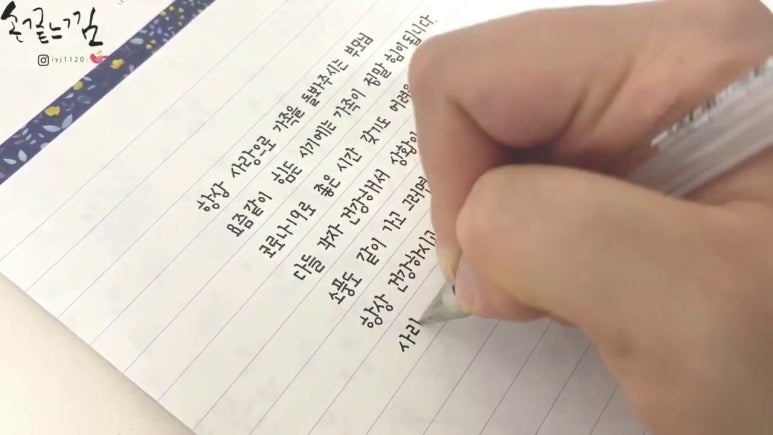 손끝느낌
iyj1120
항상 사랑으로 가족을 돌봐주시는 부모님
요즘같이 힘든 시기에는 가족이 정말 힘이 됩니다.
코로나19로 좋은 시간 갖기도 어려운
다들 각자 건강해서 상황이
소풍도 같이 가고 그러면
항상 건강하시고
사리